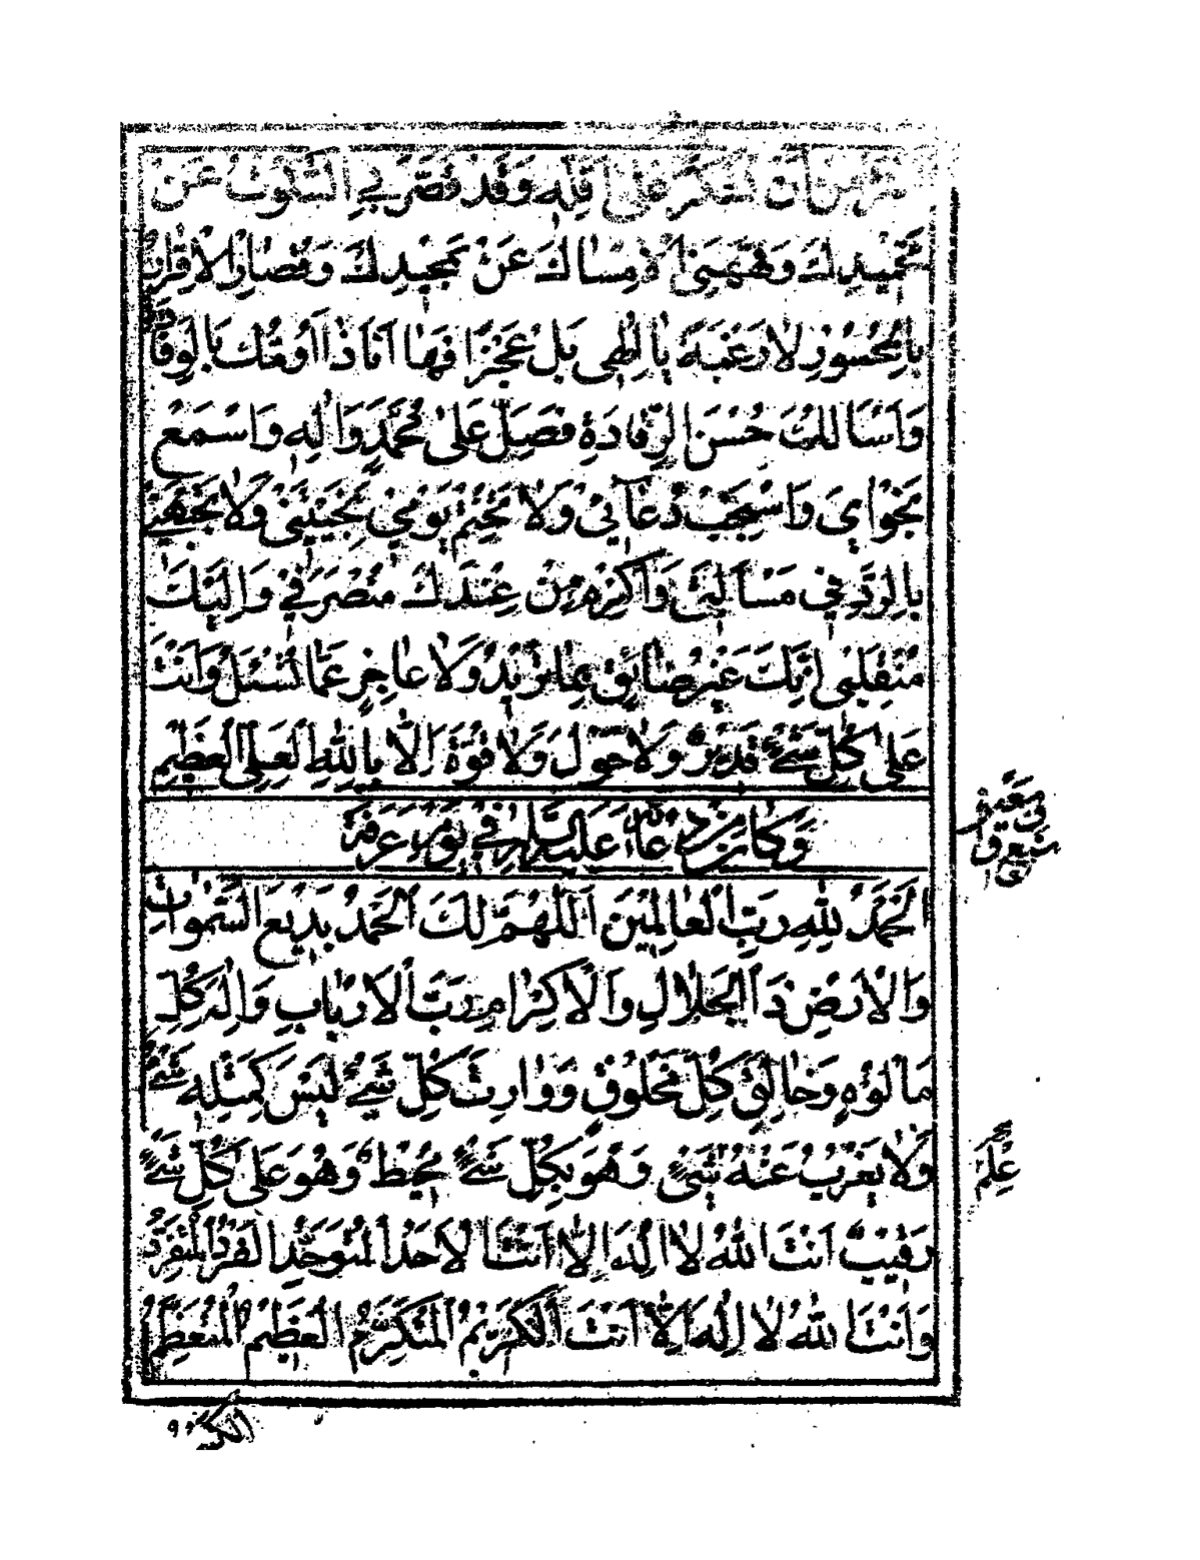 مِنْ اَنْ تُشْكَرَ عَلٰى اَقَلِّهِ وَقَدْ قَصَّرَ بِيَ السُّكُوتُ عَنْ
تَحْمِيدِكَ وَفَهَّهَنِيَ الْاِمْسَاكُ عَنْ تَمْجِيدِكَ وَقُصَارَايَ الْاِقْرَارُ
بِالْحُسُورِ لَا رَغْبَةً يَا اِلٰهِي بَلْ عَجْزًا فَهَا اَنَا ذَا اَؤُمُّكَ بِالْوِفَادَةِ
وَاَسْاَلُكَ حُسْنَ الرِّفَادَةِ فَصَلِّ عَلٰى مُحَمَّدٍ وَاٰلِهِ وَاسْمَعْ
نَجْوَايَ وَاسْتَجِبْ دُعَآئِي وَلَا تَخْتِمْ يَوْمِي بِخَيْبَتِي وَلَا تَجْبَهْنِي
بِالرَّدِّ فِي مَسْاَلَتِي وَاَكْرِمْ مِنْ عِنْدِكَ مُنْصَرَفِي وَاِلَيْكَ
مُنْقَلَبِي اِنَّكَ غَيْرُ ضَائِقٍ بِمَا تُرِيدُ وَلَا عَاجِزٍ عَمَّا تُسْئَلُ وَاَنْتَ
عَلٰى كُلِّ شَيْءٍ قَدِيرٌ وَلَا حَوْلَ وَلَا قُوَّةَ اِلَّا بِاللّٰهِ الْعَلِيِّ الْعَظِيمِ
وَكَانَ مِنْ دُعَائِهِ عَلَيْهِ السَّلَامُ فِي يَوْمِ عَرَفَةَ
اَلْحَمْدُ لِلّٰهِ رَبِّ الْعَالَمِينَ اَللّٰهُمَّ لَكَ الْحَمْدُ بَدِيعَ السَّمٰوَاتِ
وَالْاَرْضِ ذَا الْجَلَالِ وَالْاِكْرَامِ رَبَّ الْاَرْبَابِ وَاِلٰهَ كُلِّ
مَاْلُوهٍ وَخَالِقَ كُلِّ مَخْلُوقٍ وَوَارِثَ كُلِّ شَيْءٍ لَيْسَ كَمِثْلِهِ شَيْءٌ
وَلَا يَعْزُبُ عَنْهُ شَيْءٍ وَهُوَ بِكُلِّ شَيْءٍ مُحِيطٌ وَهُوَ عَلٰى كُلِّ شَيْءٍ
عِلْمُ
رَقِيبٌ اَنْتَ اللّٰهُ لَا اِلٰهَ اِلَّا اَنْتَ الْاَحَدُ الْمُتَوَحِّدُ الْفَرْدُ الْمُتَفَرِّدُ
وَاَنْتَ اللّٰهُ لَا اِلٰهَ اِلَّا اَنْتَ الْكَرِيمُ الْمُتَكَرِّمُ الْعَظِيمُ الْمُتَعَظِّمُ